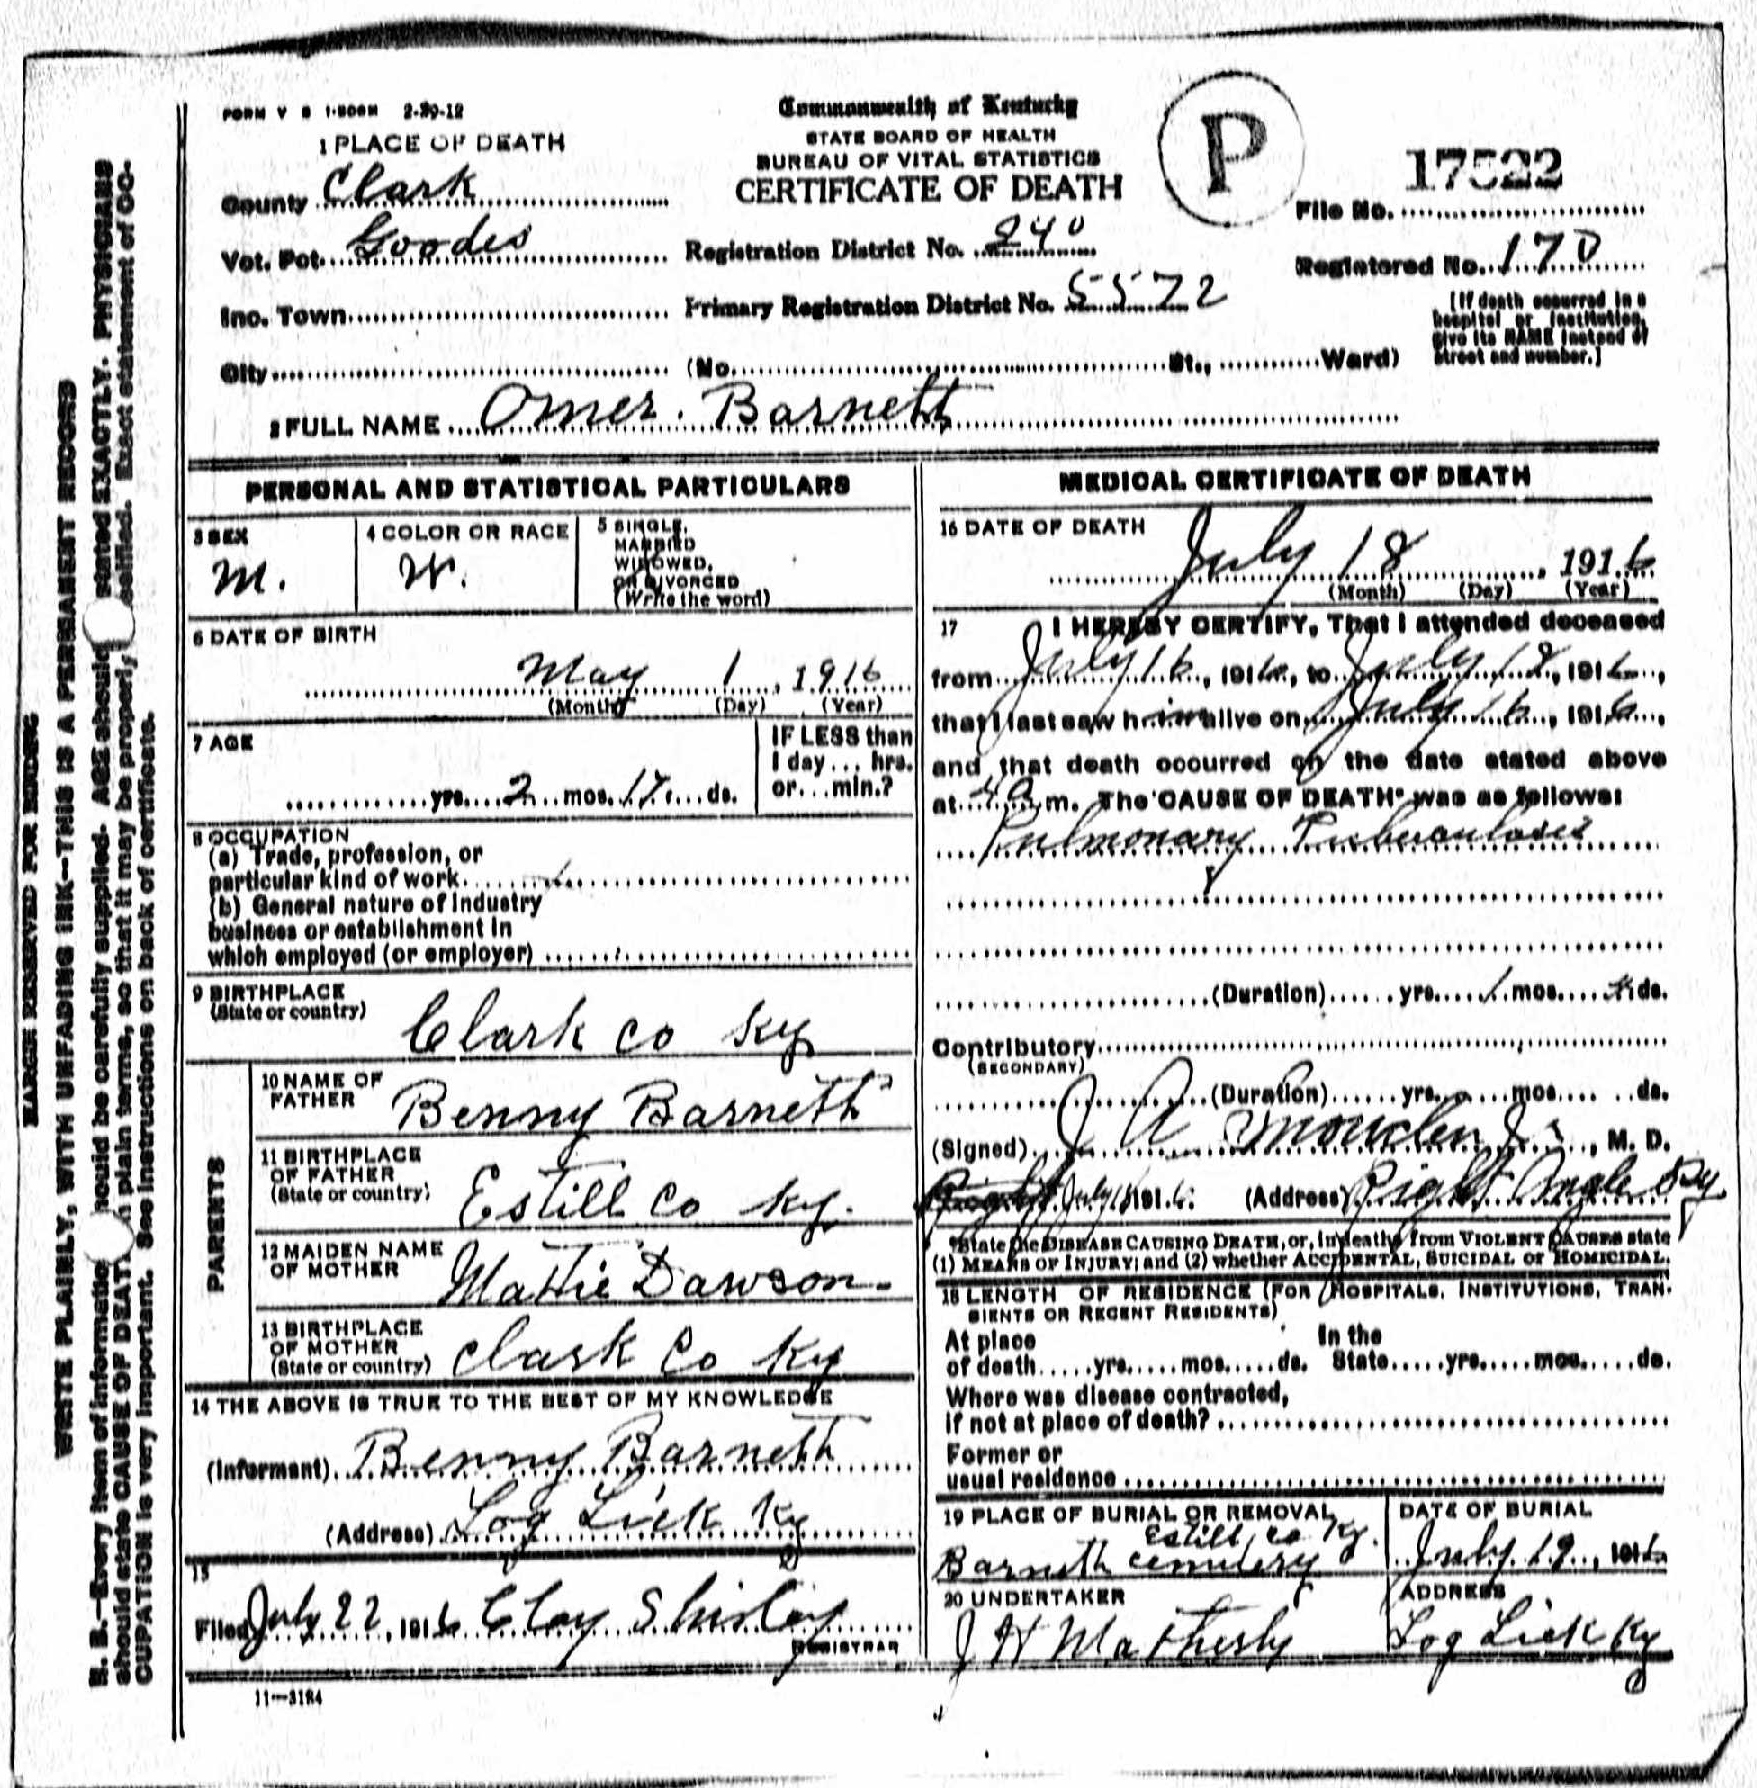 FORM V S 1-50BM 2-29-12
Commonwealth of Kentucky
STATE BOARD OF HEALTH
BUREAU OF VITAL STATISTICS
CERTIFICATE OF DEATH
P
17522
File No.
1 PLACE OF DEATH
County Clark
Vot. Pct. Goodes
Registration District No. 240
Registered No. 170
Inc. Town
Primary Registration District No. 5572
(If death occurred in a
hospital or institution,
give its NAME instead of
street and number.)
City (No. St., Ward)
2 FULL NAME Omer. Barnett
PERSONAL AND STATISTICAL PARTICULARS
3 SEX
M.
4 COLOR OR RACE
W.
5 SINGLE,
MARRIED
WIDOWED,
OR DIVORCED
(Write the word)
6 DATE OF BIRTH
May 1, 1916
(Month) (Day) (Year)
7 AGE
yrs. 2 mos. 17 ds.
IF LESS than
1 day ... hrs.
or ... min.?
8 OCCUPATION
(a) Trade, profession, or
particular kind of work
(b) General nature of industry
business or establishment in
which employed (or employer)
9 BIRTHPLACE
(State or country)
Clark co Ky
PARENTS
10 NAME OF
FATHER
Benny Barnett
11 BIRTHPLACE
OF FATHER
(State or country)
Estill Co Ky.
12 MAIDEN NAME
OF MOTHER
Mattie Dawson
13 BIRTHPLACE
OF MOTHER
(State or country)
Clark Co Ky
14 THE ABOVE IS TRUE TO THE BEST OF MY KNOWLEDGE
(Informant) Benny Barnett
(Address) Log Lick Ky
15
Filed July 22, 1916 Clay Shirley
REGISTRAR
11-3184
MEDICAL CERTIFICATE OF DEATH
16 DATE OF DEATH
July 18, 1916
(Month) (Day) (Year)
17 I HEREBY CERTIFY, That I attended deceased
from July 16, 1916, to July 18, 1916,
that I last saw h im alive on July 16, 1916,
and that death occurred on the date stated above
at 4 a m. The CAUSE OF DEATH* was as follows:
Pulmonary Tuberculosis
(Duration) yrs. 1 mos. 4 ds.
Contributory
(SECONDARY)
(Duration) yrs. mos. ds.
(Signed) J A Jr., M. D.
July 1916. (Address) Right Angle Ky
*State the DISEASE CAUSING DEATH, or, in deaths from VIOLENT CAUSES state
(1) MEANS OF INJURY; and (2) whether ACCIDENTAL, SUICIDAL or HOMICIDAL.
18 LENGTH OF RESIDENCE (FOR HOSPITALS, INSTITUTIONS, TRAN-
SIENTS OR RECENT RESIDENTS)
At place
of death yrs. mos. ds.
In the
State yrs. mos. ds.
Where was disease contracted,
if not at place of death?
Former or
usual residence
19 PLACE OF BURIAL OR REMOVAL
Estill co Ky.
Barnett cemetery
DATE OF BURIAL
July 19, 1916
20 UNDERTAKER
J H Matherly
ADDRESS
Log Lick Ky
MARGIN RESERVED FOR BINDING
WRITE PLAINLY, WITH UNFADING INK—THIS IS A PERMANENT RECORD
N. B.—Every item of information should be carefully supplied. AGE should stated EXACTLY. PHYSICIANS
should state CAUSE OF DEATH plain terms, so that it may be properly ssified. Exact statement of OC-
CUPATION is very important. See instructions on back of certificate.